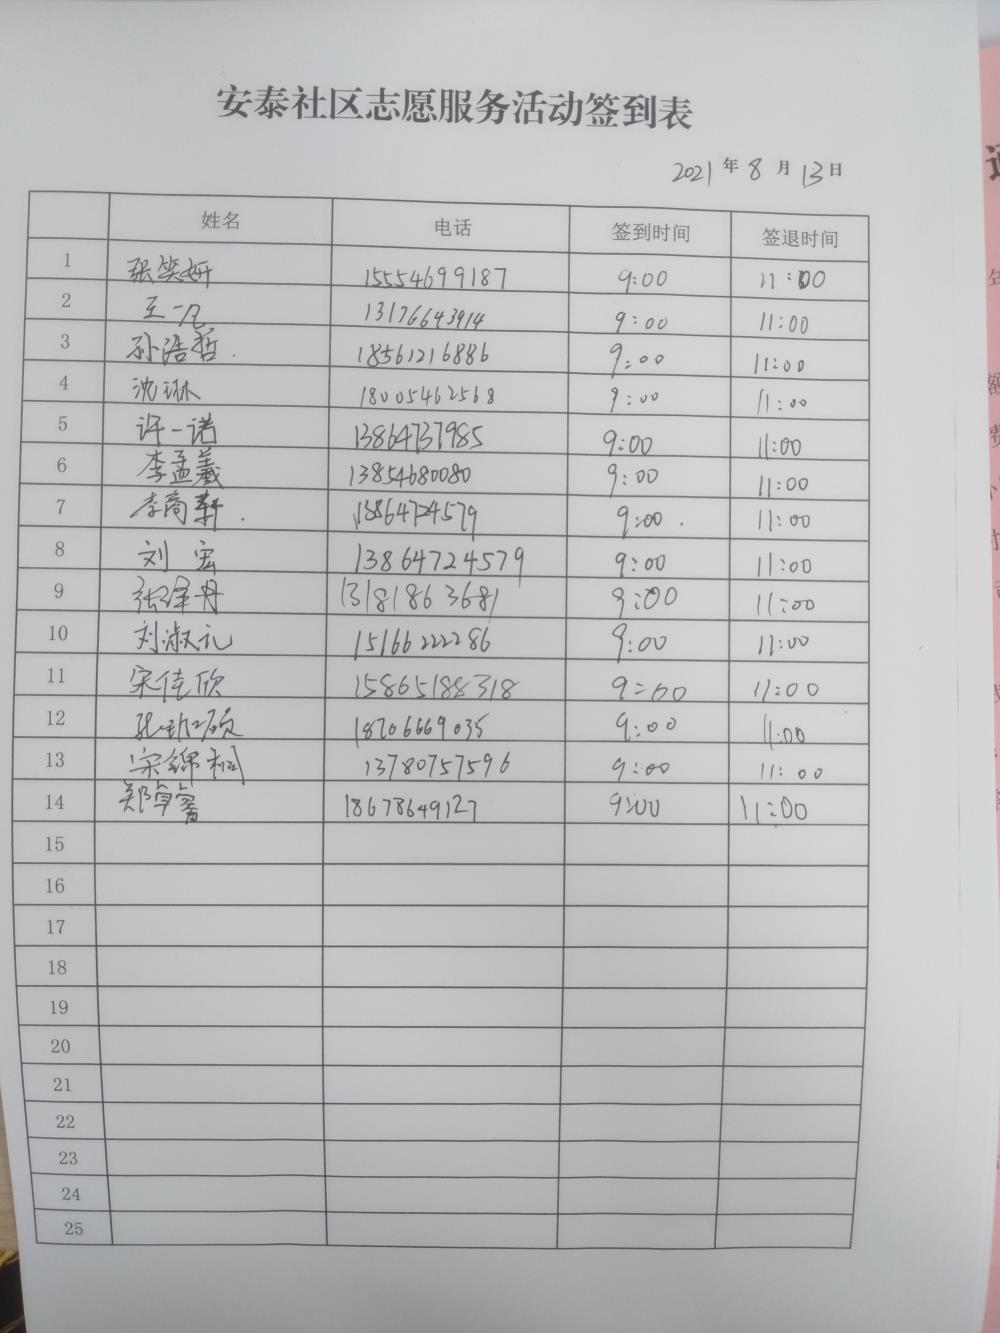 安泰社区志愿服务活动签到表
2021年8月13日
姓名 电话 签到时间 签退时间
1 张笑妍 15554699187 9:00 11:00
2 王一凡 13176643914 9:00 11:00
3 孙浩哲. 18561216886 9:00 11:00
4 沈琳 18005462568 9:00 11:00
5 许一诺 13864737985 9:00 11:00
6 李孟羲 13854680080 9:00 11:00
7 李商轩. 13864724579 9:00. 11:00
8 刘宏 13864724579 9:00 11:00
9 13181863681 9:00 11:00
10 刘淑礼 15166222286 9:00 11:00
11 宋佳欣 15865188318 9:00 11:00
12 18706669035 9:00 11:00
13 宋锦桐 13780757596 9:00 11:00
14 18678649127 9:00 11:00
15
16
17
18
19
20
21
22
23
24
25